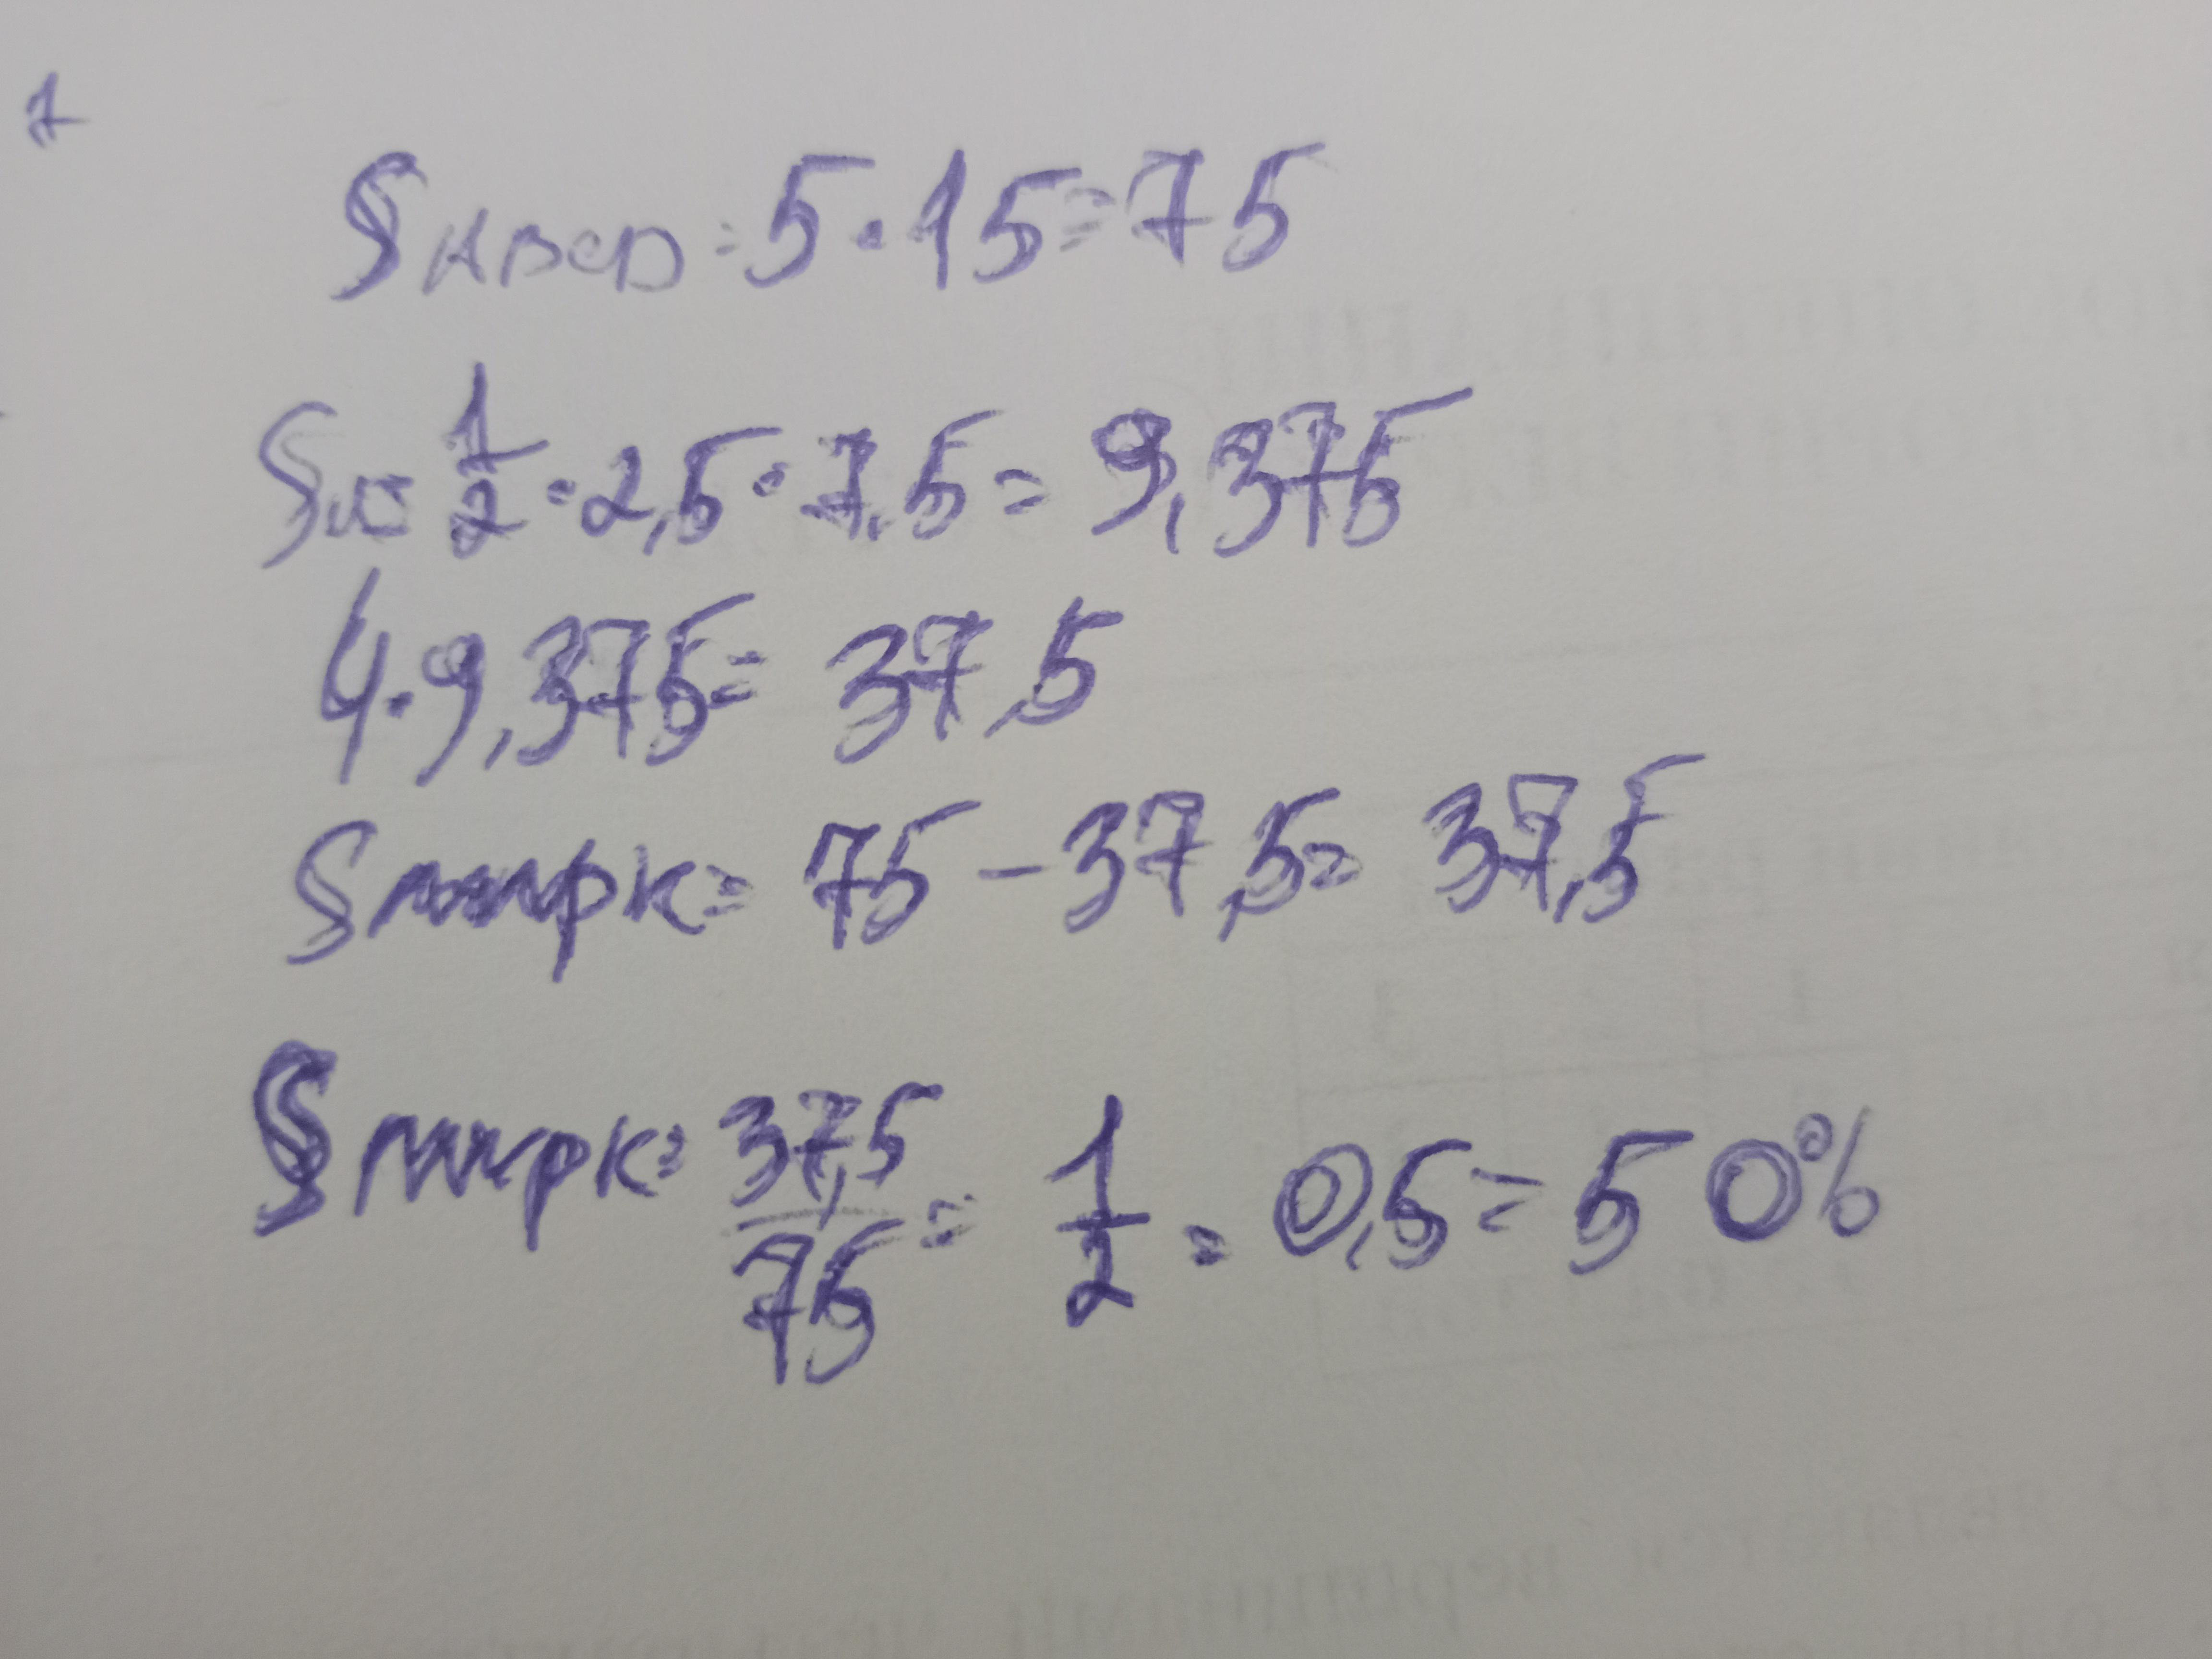 1
S ABCD = 5 · 15 = 75
S = 1/2 · 2,5 · 7,5 = 9,375
4 · 9,375 = 37,5
S = 75 - 37,5 = 37,5
S = 37,5/75 = 1/2 = 0,5 = 50%